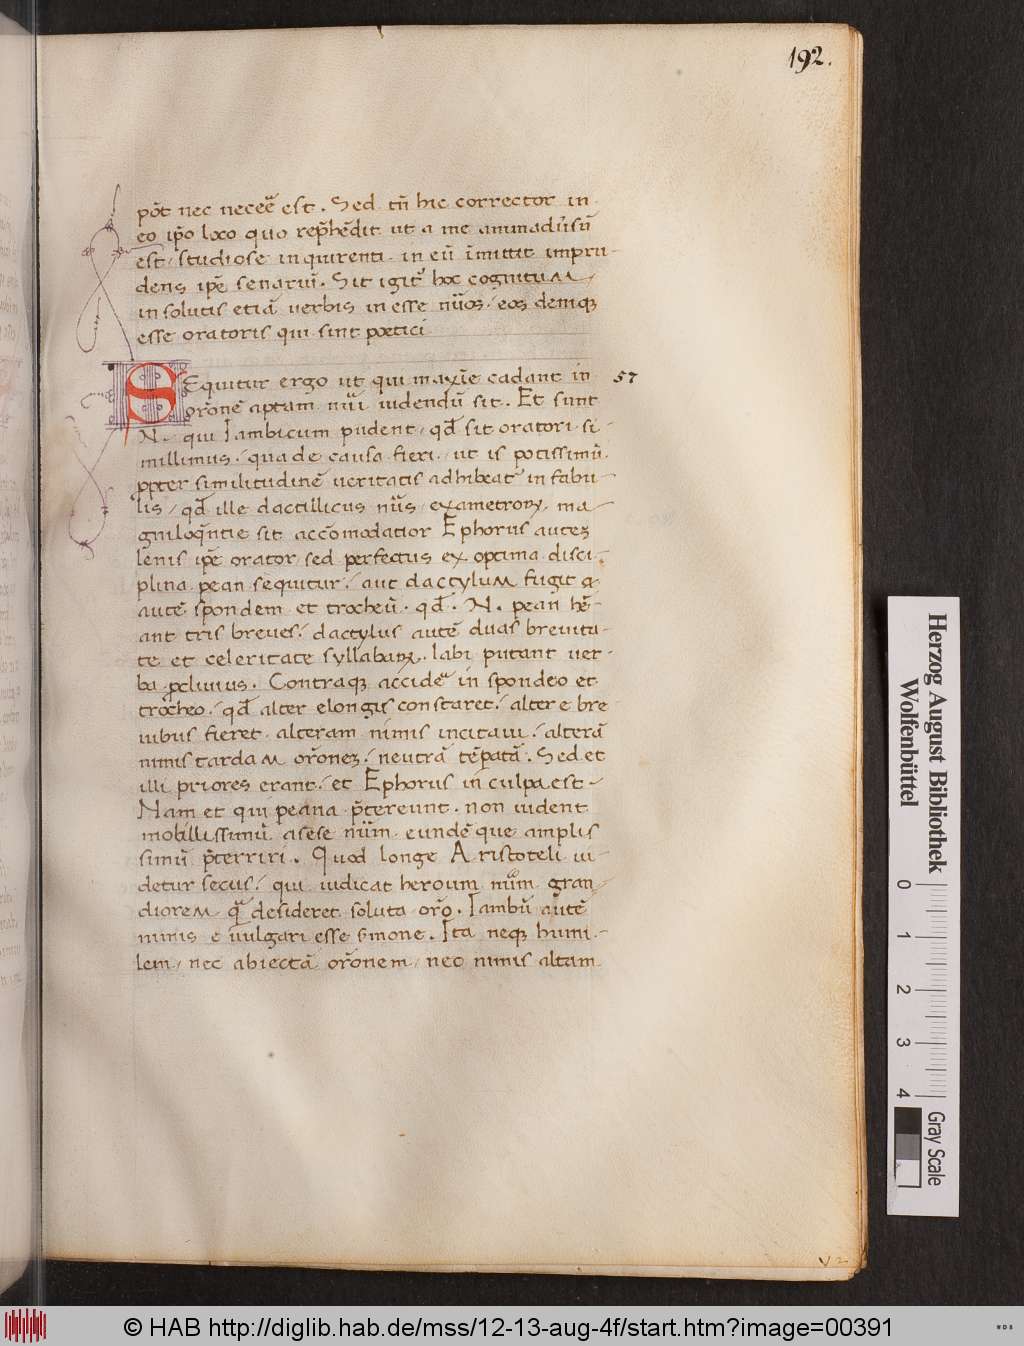 192.
põt nec neceẽ est. Sed tñ hic corrector in
eo ip̃o loco quo rep̃hẽdit ut a me animadũsũ
est / studiose inquirenti in eũ ĩmittit impru-
dens ip̃e senariũ. Sit igit̃ hoc cognitum /
in solutis etiã verbis in esse nũos / eosdemqꝫ
esse oratoris qui sint poetici
SEquitur ergo ut qui maxĩe cadant in 57
or̃onẽ aptam nũi uidendũ sit. Et sunt
N. qui Iambicum putent / qđ sit orationi si-
millimus / qua de causa fieri / ut is potissimũ
ꝓpter similitudinẽ veritatis adhibeat̃ in fabu-
lis / qđ ille dactillicus nũs exametroꝝ ma-
gniloq̃ntie sit accõmodatior Ephorus auteꝫ
lenis ip̃e orator sed perfectus ex optima disci-
plina pean sequitur / aut dactylum fugit
autẽ spondeum et trocheũ. qđ. N. pean hẽ-
ant tris breues / dactylus autẽ duas breuita-
te et celeritate syllabaꝝ labi putant ver-
ba ꝓcliuius. Contraqꝫ accidẽ in spondeo et
trocheo / qđ alter elongis constaret / alter e bre
uibus fieret alteram nimis incitam / alterã
nimis tardam or̃oneꝫ / neutrã tẽpatã. Sed et
illi priores erant / et Ephorus in culpa est -
Nam et qui peana p̃tereunt non uident
mobillissimũ a sese nũm eundẽque amplis
simũ p̃terriri. Quod longe Aristoteli ui-
detur secus / qui iudicat heroum nũm gran-
diorem q̃ desideret soluta or̃o. Iambũ autẽ
nimis e uulgari esse s̃mone. Ita neqꝫ humi-
lem / nec abiectã or̃onem / nec nimis altam
Herzog August Bibliothek
Wolfenbüttel
0 1 2 3 4
Gray Scale
© HAB http://diglib.hab.de/mss/12-13-aug-4f/start.htm?image=00391